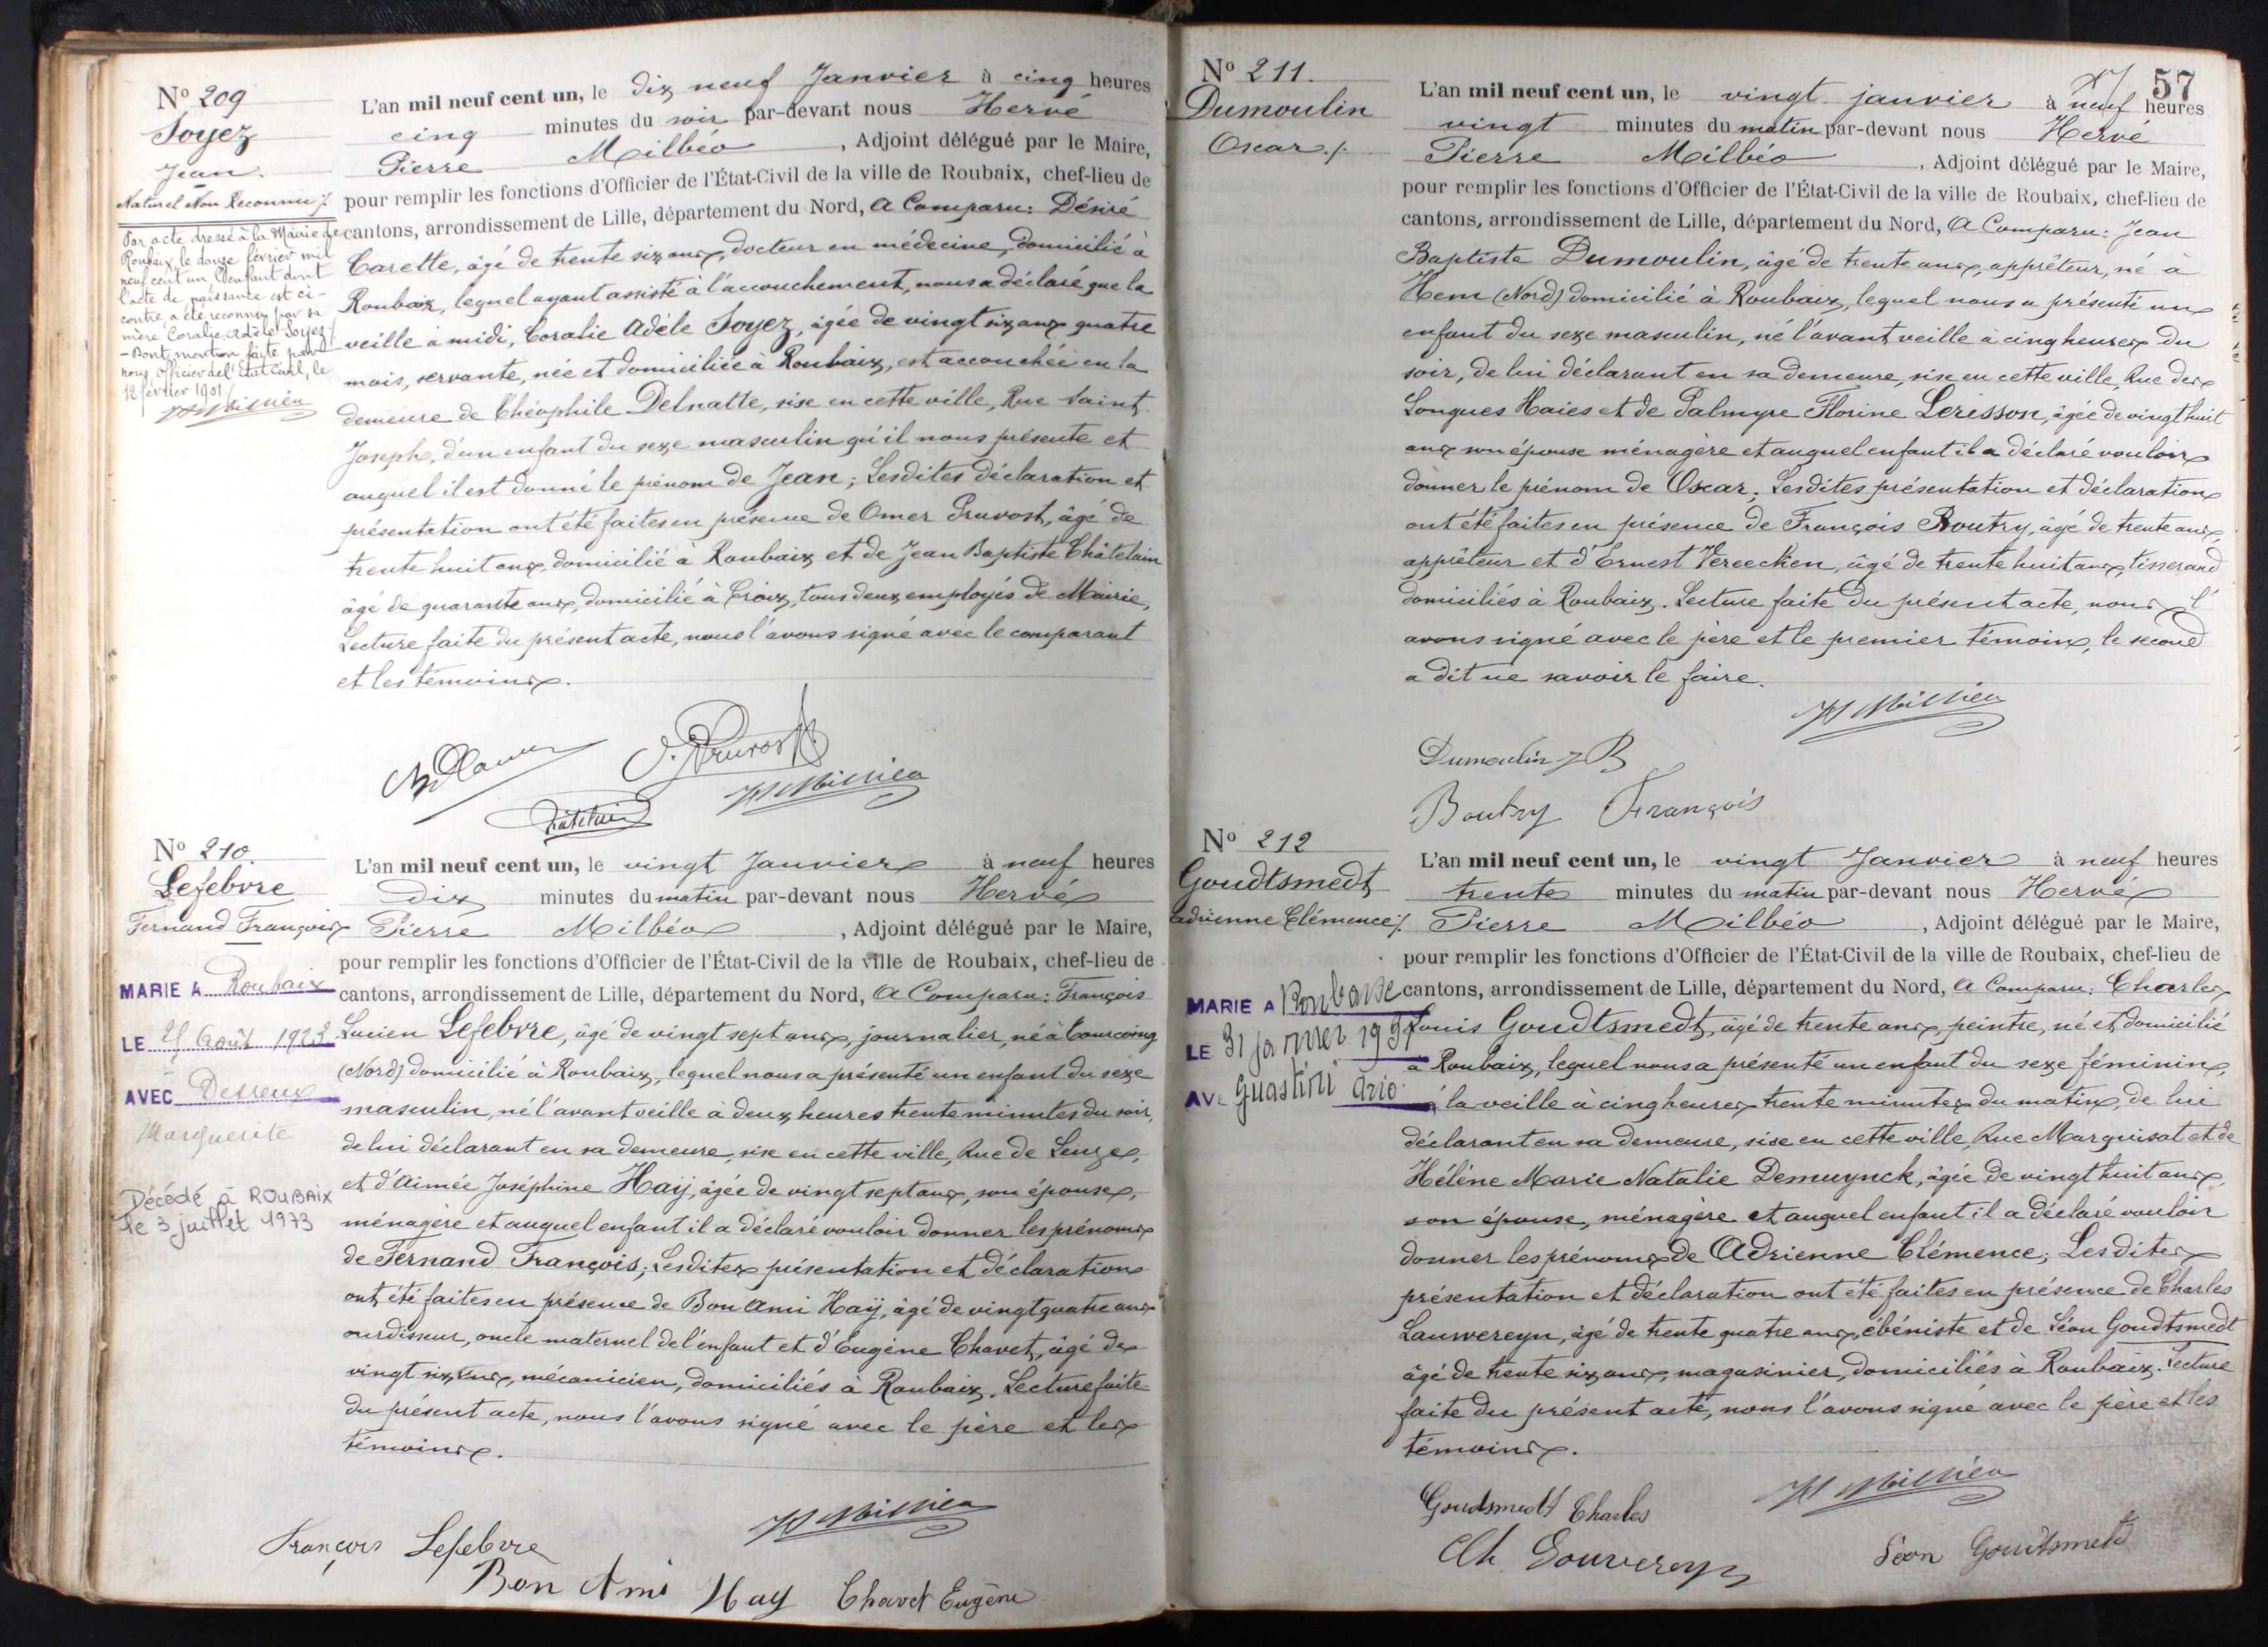 Nº 209
Soyez
Jean.
Naturel Non Reconnu
Par acte dressé à la Mairie de
Roubaix, le douze février mil
neuf cent un, l'enfant dont
l'acte de naissance est ci-
contre, a été reconnu par sa
mère Coralie Adèle Soyez.
- Dont mention faite par
nous Officier de l'Etat Civil, le
12 février 1901.
L'an mil neuf cent un, le dix neuf Janvier à cinq heures
cinq minutes du soir par-devant nous Hervé
Pierre Milbéo, Adjoint délégué par le Maire,
pour remplir les fonctions d'Officier de l'État-Civil de la ville de Roubaix, chef-lieu de
cantons, arrondissement de Lille, département du Nord, A Comparu: Désiré
Carette, âgé de trente six ans, docteur en médecine, domicilié à
Roubaix, lequel ayant assisté à l'accouchement, nous a déclaré que la
veille à midi, Coralie Adèle Soyez, âgée de vingt six ans quatre
mois, servante, née et domiciliée à Roubaix, est accouchée en la
demeure de Théophile Delnatte, sise en cette ville, Rue Saint
Joseph, d'un enfant du sexe masculin qu'il nous présente et
auquel il est donné le prénom de Jean; Lesdites déclaration et
présentation ont été faites en présence de Omer Pruvost, âgé de
trente huit ans, domicilié à Roubaix et de Jean Baptiste Châtelain
âgé de quarante ans, domicilié à Croix, tous deux employés de Mairie,
Lecture faite du présent acte, nous l'avons signé avec le comparant
et les témoins.
O. Pruvost
Nº 210.
Lefebvre
Fernand François
MARIE A Roubaix
LE 25 Août 1923
AVEC Desreux
Marguerite
Décédé à ROUBAIX
le 3 juillet 1973
L'an mil neuf cent un, le vingt Janvier à neuf heures
dix minutes du matin par-devant nous Hervé
Pierre Milbéo, Adjoint délégué par le Maire,
pour remplir les fonctions d'Officier de l'État-Civil de la ville de Roubaix, chef-lieu de
cantons, arrondissement de Lille, département du Nord, A Comparu: François
Lucien Lefebvre, âgé de vingt sept ans, journalier, né à Tourcoing
(Nord) domicilié à Roubaix, lequel nous a présenté un enfant du sexe
masculin, né l'avant veille à deux heures trente minutes du soir,
de lui déclarant en sa demeure, sise en cette ville, Rue de Leuze,
et d'Aimée Joséphine Haÿ, âgée de vingt sept ans, son épouse,
ménagère et auquel enfant il a déclaré vouloir donner les prénoms
de Fernand François; Lesdites présentation et déclaration
ont été faites en présence de Bon Ami Haÿ, âgé de vingt quatre ans
ourdisseur, oncle maternel de l'enfant et d'Eugène Chavet, âgé de
vingt six ans, mécanicien, domiciliés à Roubaix. Lecture faite
du présent acte, nous l'avons signé avec le père et les
témoins.
François Lefebvre
Bon Ami Hay Chavet Eugène
57
Nº 211.
Dumoulin
Oscar
L'an mil neuf cent un, le vingt janvier à neuf heures
vingt minutes du matin par-devant nous Hervé
Pierre Milbéo, Adjoint délégué par le Maire,
pour remplir les fonctions d'Officier de l'État-Civil de la ville de Roubaix, chef-lieu de
cantons, arrondissement de Lille, département du Nord, A Comparu: Jean
Baptiste Dumoulin, âgé de trente ans, apprêteur, né à
Hem (Nord) domicilié à Roubaix, lequel nous a présenté un
enfant du sexe masculin, né l'avant veille à cinq heures du
soir, de lui déclarant en sa demeure, sise en cette ville, Rue des
Longues Haies et de Palmyre Florine Lerisson, âgée de vingt huit
ans son épouse ménagère et auquel enfant il a déclaré vouloir
donner le prénom de Oscar. Lesdites présentation et déclaration
ont été faites en présence de François Boutry, âgé de trente ans,
apprêteur et d'Ernest Vereecken, âgé de trente huit ans, tisserand
domiciliés à Roubaix. Lecture faite du présent acte, nous l'
avons signé avec le père et le premier témoin, le second
a dit ne savoir le faire.
Dumoulin J B
Boutry François
Nº 212
Goudtsmedt
Adrienne Clémence
MARIE A Roubaix
LE 31 janvier 1931
AVEC Guastini Ario
L'an mil neuf cent un, le vingt Janvier à neuf heures
trente minutes du matin par-devant nous Hervé
Pierre Milbéo, Adjoint délégué par le Maire,
pour remplir les fonctions d'Officier de l'État-Civil de la ville de Roubaix, chef-lieu de
cantons, arrondissement de Lille, département du Nord, A Comparu: Charles
Louis Goudtsmedt, âgé de trente ans, peintre, né et domicilié
à Roubaix, lequel nous a présenté un enfant du sexe féminin,
né la veille à cinq heures trente minutes du matin, de lui
déclarant en sa demeure, sise en cette ville, Rue Marquisat et de
Hélène Marie Natalie Demuynck, âgée de vingt huit ans,
son épouse, ménagère et auquel enfant il a déclaré vouloir
donner les prénoms de Adrienne Clémence; Lesdites
présentation et déclaration ont été faites en présence de Charles
Lauwereyn, âgé de trente quatre ans, ébéniste et de Léon Goudtsmedt
âgé de trente six ans, magasinier, domiciliés à Roubaix. Lecture
faite du présent acte, nous l'avons signé avec le père et les
témoins.
Goudsmedt Charles
Ch Louvereyn
Léon Goudtsmedt